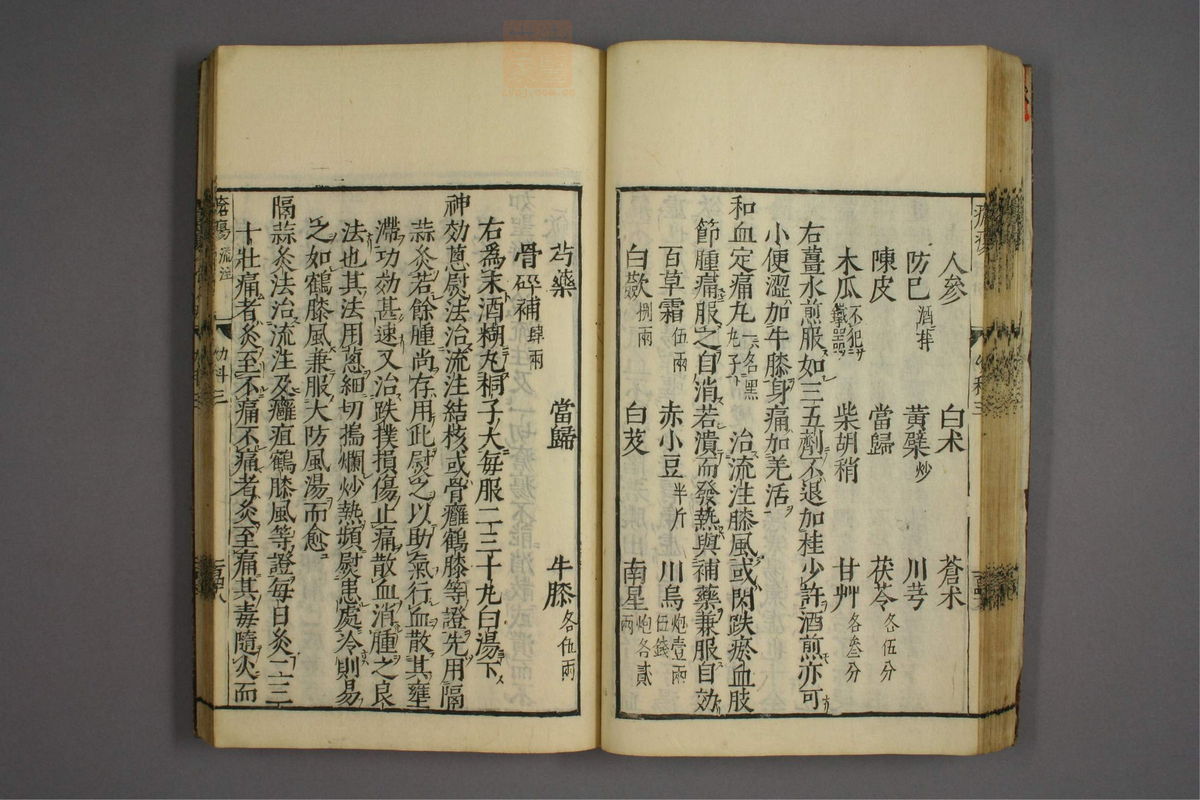 人參 白术 蒼术
防巳酒拌 黃蘗炒 川芎
陳皮 當歸 茯苓各伍分
木瓜不犯鐵器 柴胡稍 甘艸各叁分
右薑水煎服如三五劑不退加桂少許酒煎亦可
小便澀加牛膝身痛加羌活
和血定痛丸一名黑丸子 治流注膝風或閃跌瘀血肢
節腫痛服之自消若潰而發熱與補藥兼服自効
百草霜伍兩 赤小豆半斤 川烏炮壹兩伍錢
白歛捌兩 白芨 南星炮各貳兩
芍藥 當歸 牛膝各伍兩
骨碎補肆兩
右爲末酒糊丸桐子大毎服二三十丸白湯下
神効蔥熨法治流注結核或骨癰鶴膝等證先用隔
蒜灸若餘腫尚存用此熨之以助氣行血散其壅
滯功効甚速又治跌撲損傷止痛散血消腫之良
法也其法用蔥細切搗爛炒熱頻熨患處冷則易
之如鶴膝風兼服大防風湯而愈
隔蒜灸法治流注及癰疽鶴膝風等證毎日灸二三
十壯痛者灸至不痛不痛者灸至痛其毒隨火而
瘡瘍 流注 幼科三